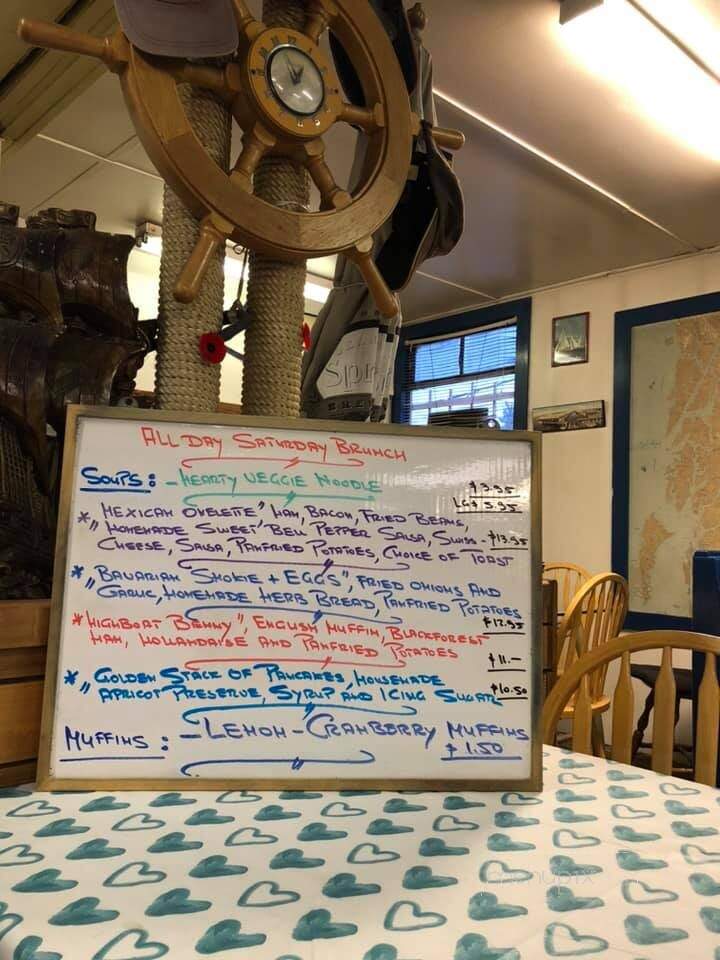 Spri
ALL DAY SATURDAY BRUNCH
SOUPS: - HEARTY VEGGIE NOODLE $3.95
LG $5.95
* "MEXICAN OMELETTE" HAM, BACON, FRIED BEANS,
HOMEMADE SWEET BELL PEPPER SALSA, SWISS - $13.95
CHEESE, SALSA, PANFRIED POTATOES, CHOICE OF TOAST
* "BAVARIAN SMOKIE + EGGS", FRIED ONIONS AND
GARLIC, HOMEMADE HERB BREAD, PANFRIED POTATOES
$12.95
* "HIGHBOAT BENNY", ENGLISH MUFFIN, BLACKFOREST
HAM, HOLLANDAISE AND PANFRIED POTATOES
$11.-
* "GOLDEN STACK OF PANCAKES, HOMEMADE
APRICOT PRESERVE, SYRUP AND ICING SUGAR $10.50
MUFFINS: - LEMON - CRANBERRY MUFFINS
$1.50